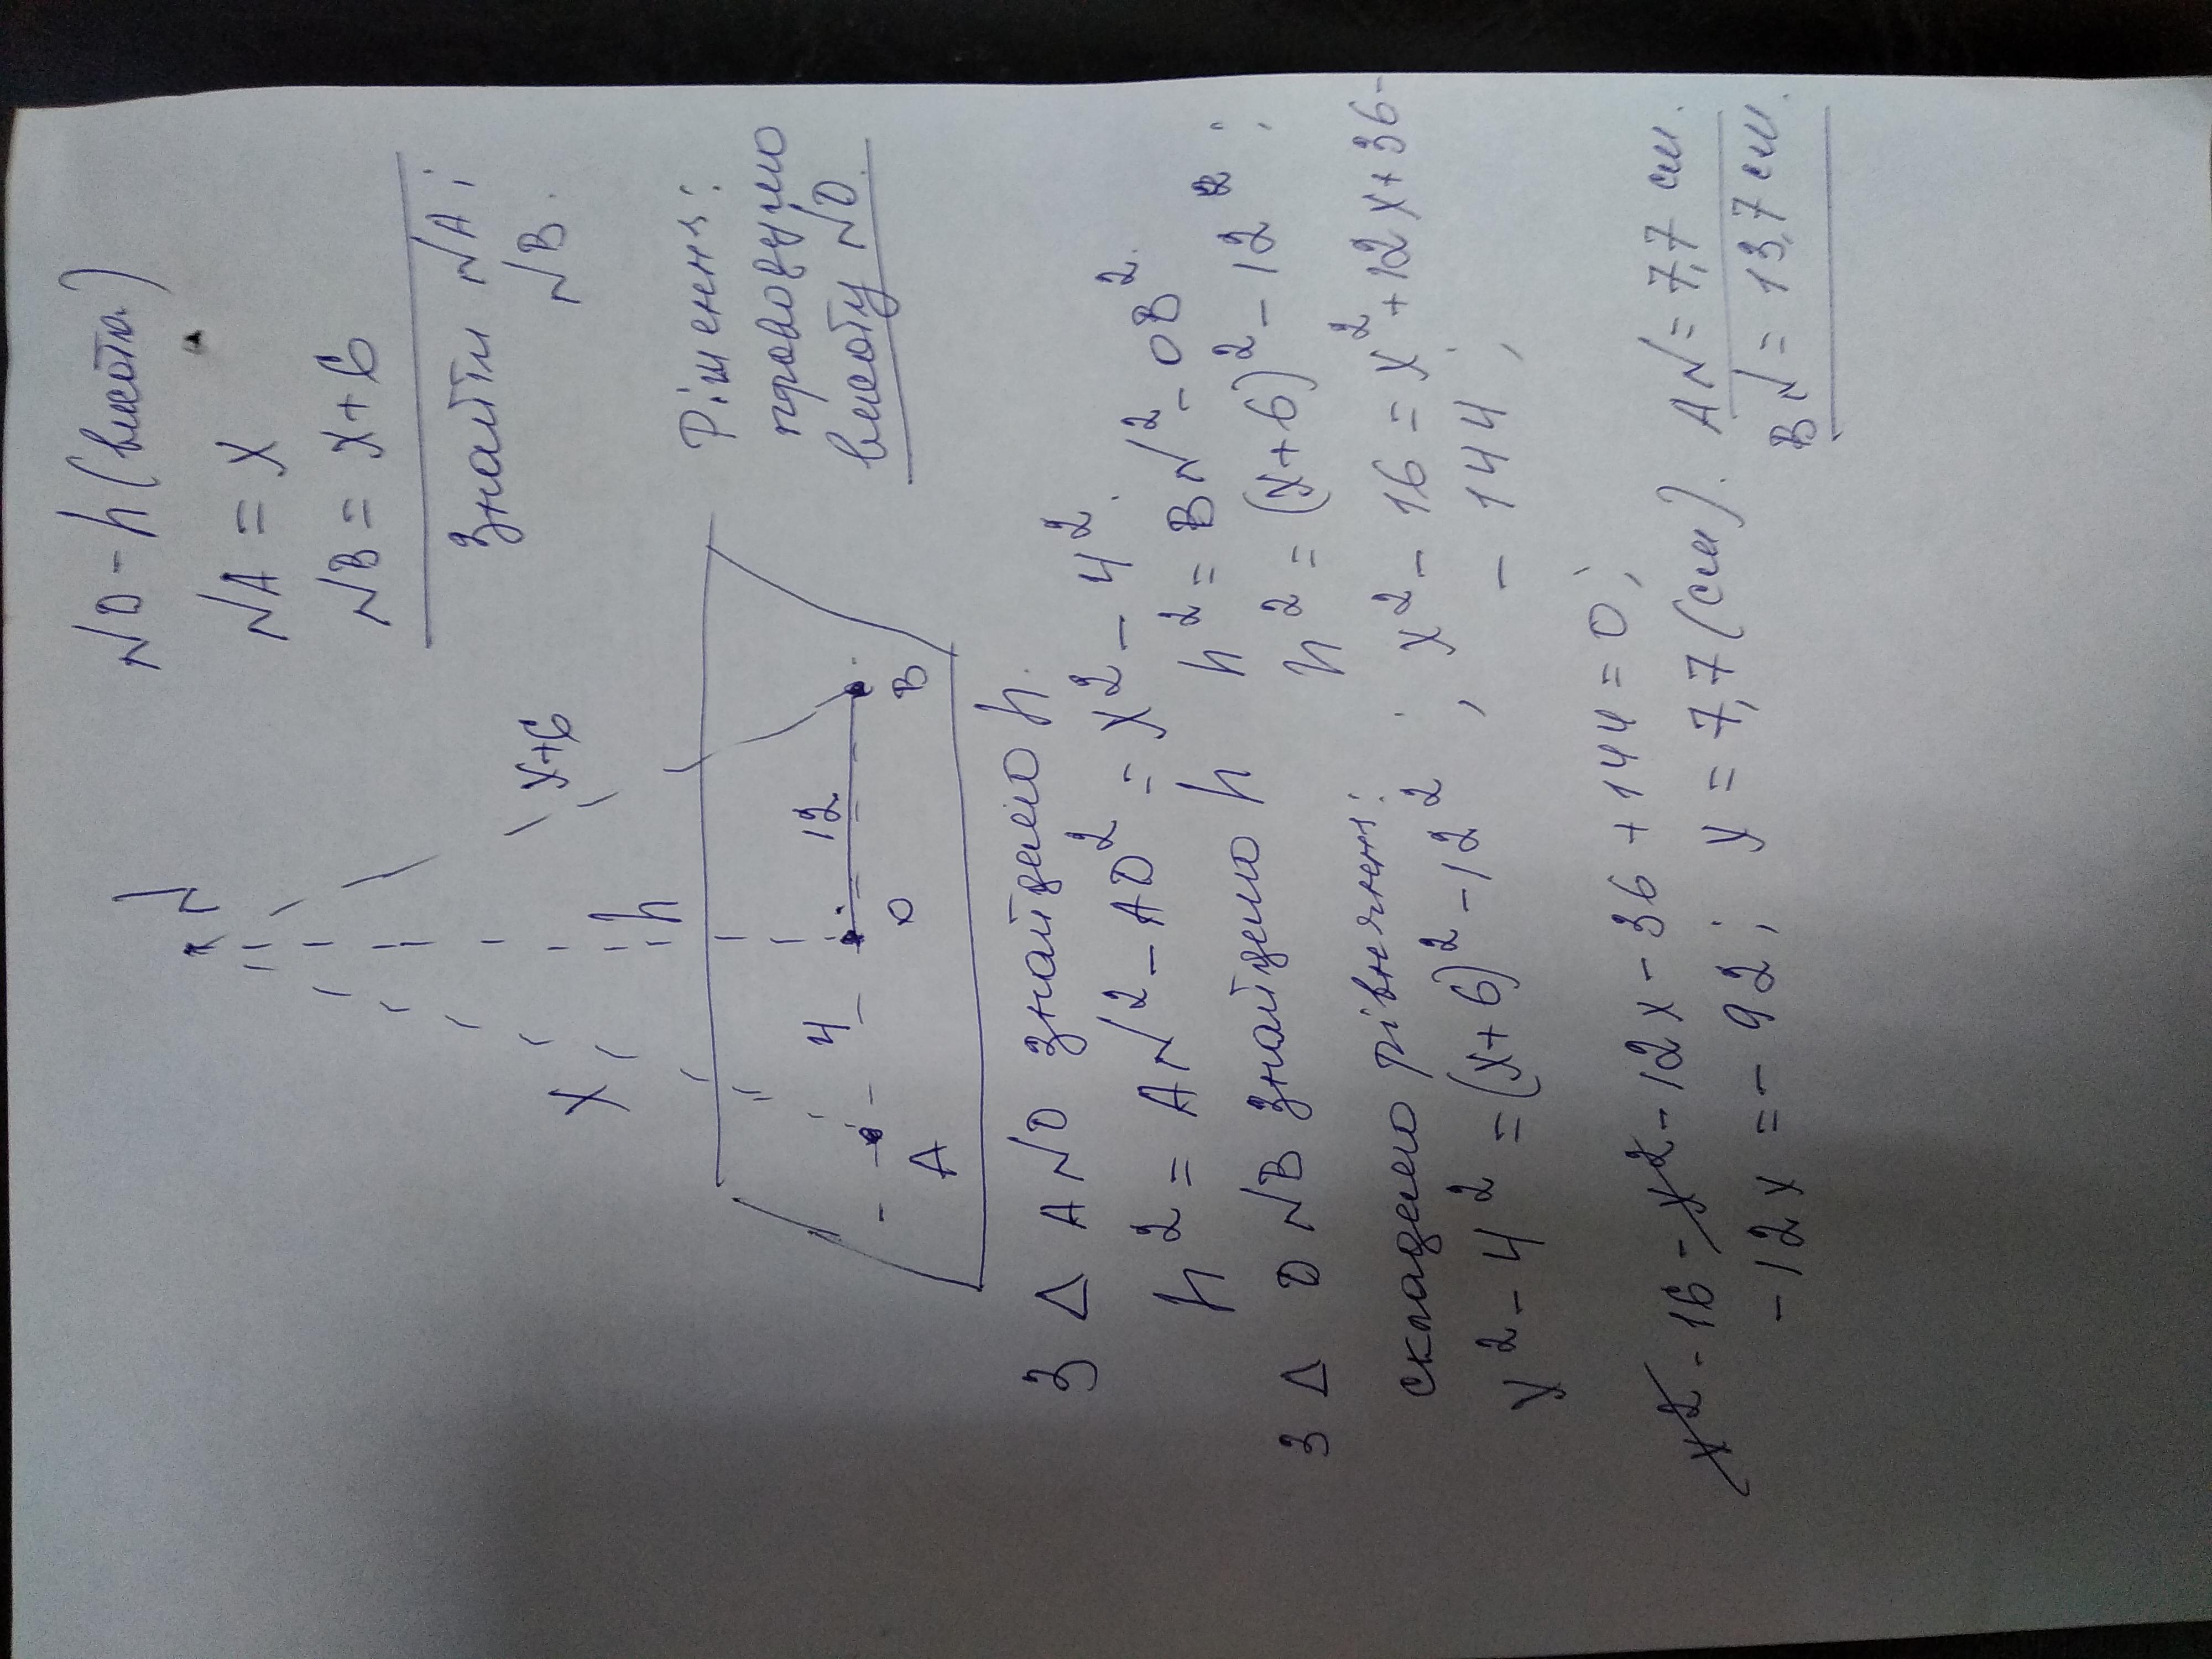 NO - h (висота)
NA = x
NB = x + 6
Знайти NA і
NB.
N
x
x+6
h
4
12
A
O
B
Рішення:
проводимо
висоту NO.
З Δ ANO знайдемо h.
h² = AN² - AO² = x² - 4².
З Δ ONB знайдемо h h² = BN² - OB².
h² = (x+6)² - 12²;
складемо рівняння:
x² - 4² = (x+6)² - 12²; x² - 16 = x² + 12x + 36 -
- 144;
x² - 16 - x² - 12x - 36 + 144 = 0;
-12x = - 92; x = 7,7 (см). AN = 7,7 см.
BN = 13,7 см.